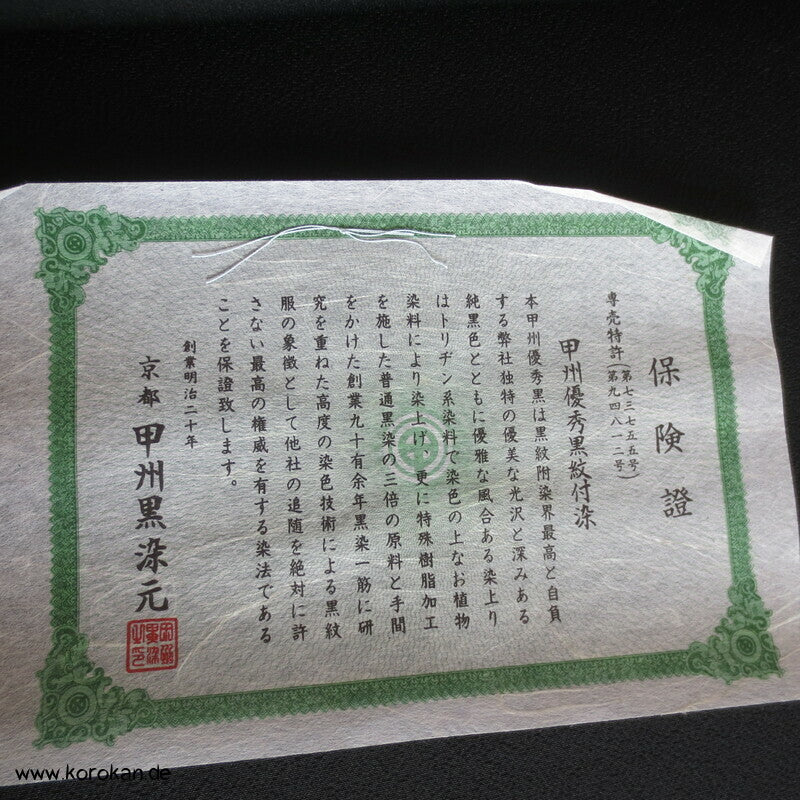 保険證
専売特許(第七三七五五号)
(第九四八一二号)
甲州優秀黒紋付染
本甲州優秀黒は黒紋附染界最高と自負
する弊社独特の優美な光沢と深みある
純黒色とともに優雅な風合ある染上り
はトリヂン系染料で染色の上なお植物
染料により染上げ、更に特殊樹脂加工
を施した普通黒染の三倍の原料と手間
をかけた創業九十有余年黒染一筋に研
究を重ねた高度の染色技術による黒紋
服の象徴として他社の追随を絶対に許
さない最高の権威を有する染法である
ことを保證致します。
創業明治二十年
京都 甲州黒染元
www.korokan.de